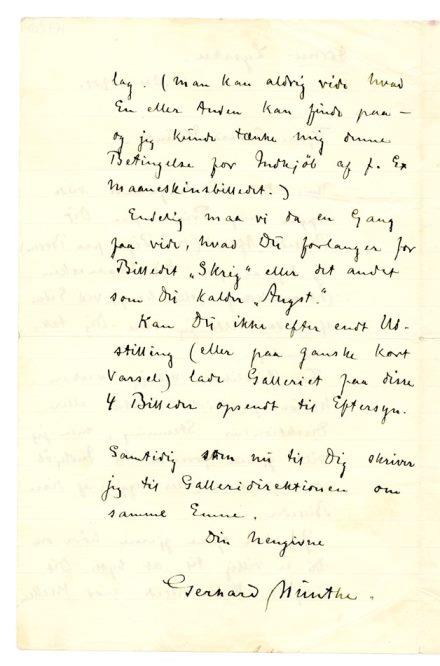 lag. (man kan aldrig vide hvad
En eller Anden kan finde paa –
og jeg kunde tænke mig denne
Betingelse for Indkjøb af f. Ex
Maaneskinsbilledet.)
Endelig maa vi da en Gang
faa vide, hvad Du forlanger for
Billedet „Skrig" eller det andet
som Du kalder „Angst."
Kan Du ikke efter endt Ud-
stilling (eller paa ganske kort
Varsel) lade Galleriet faa disse
4 Billeder opsendt til Eftersyn.
Samtidig som nu til Dig skriver
jeg til Galleridirektionen om
samme Emne.
Din hengivne
Gerhard Munthe.